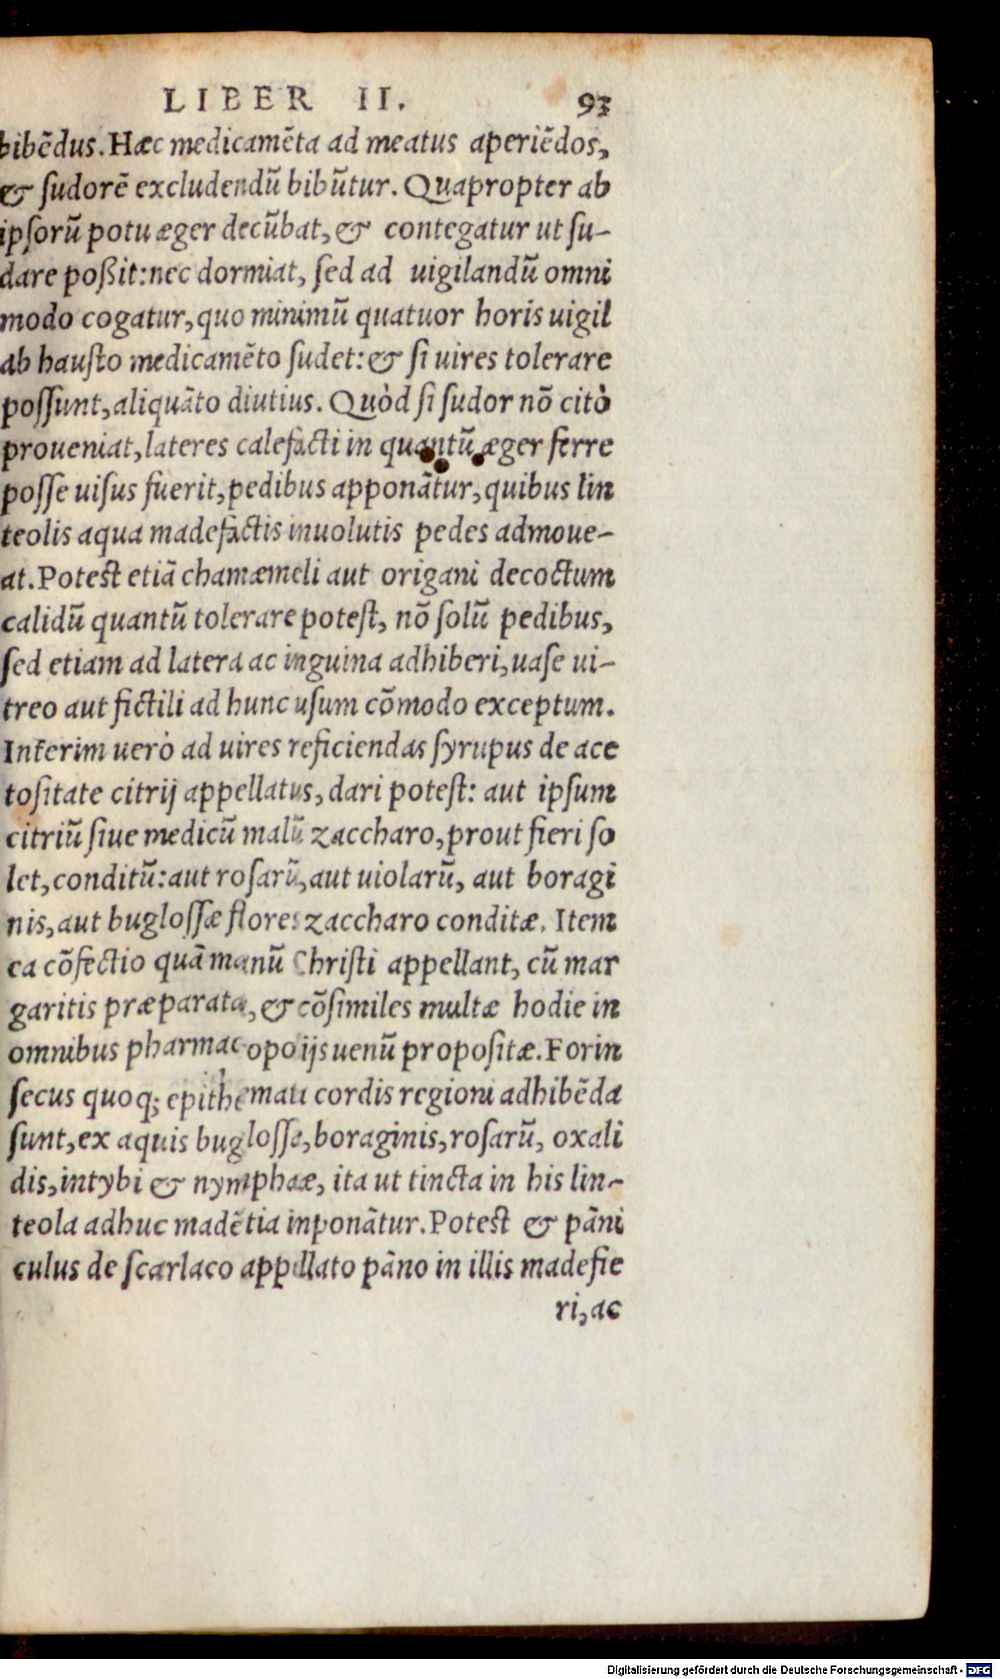 LIBER II. 93
bibēdus. Hæc medicamēta ad meatus aperiēdos,
& sudorē excludendū bibūtur. Quapropter ab
ipsorū potu æger decūbat, & contegatur ut su-
dare poßit: nec dormiat, sed ad uigilandū omni
modo cogatur, quo minimū quatuor horis uigil
ab hausto medicamēto sudet: & si uires tolerare
possunt, aliquāto diutius. Quòd si sudor nō citò
proueniat, lateres calefacti in quantū æger ferre
posse uisus fuerit, pedibus apponātur, quibus lin
teolis aqua madefactis inuolutis pedes admoue-
at. Potest etiā chamæmeli aut origani decoctum
calidū quantū tolerare potest, nō solū pedibus,
sed etiam ad latera ac inguina adhiberi, uase ui-
treo aut fictili ad hunc usum cōmodo exceptum.
Interim uerò ad uires reficiendas syrupus de ace
tositate citrij appellatus, dari potest: aut ipsum
citriū siue medicū malū zaccharo, prout fieri so
let, conditū: aut rosarū, aut uiolarū, aut boragi
nis, aut buglossæ flores zaccharo conditæ. Item
ea cōfectio quā manū Christi appellant, cū mar
garitis præparata, & cōsimiles multæ hodie in
omnibus pharmacopoijs uenū propositæ. Forin
secus quoq; epithemata cordis regioni adhibēda
sunt, ex aquis buglosse, boraginis, rosarū, oxali
dis, intybi & nymphææ, ita ut tincta in his lin-
teola adhuc madētia inponātur. Potest & pāni
culus de scarlaco appellato pāno in illis madefie
ri, ac
Digitalisierung gefördert durch die Deutsche Forschungsgemeinschaft - DFG